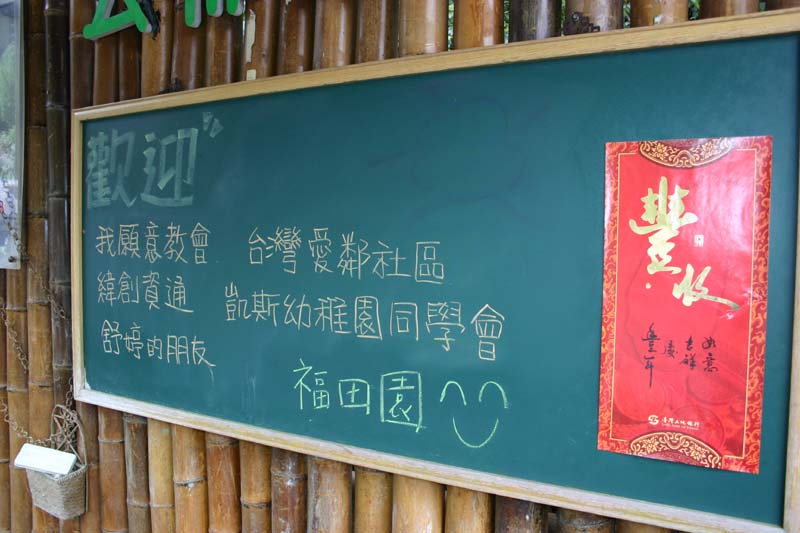 歡迎
我願意教會
台灣愛鄰社區
緯創資通
凱斯幼稚園同學會
舒婷的朋友
福田園
豐收
如意
吉祥
慶
豐年
臺灣土地銀行